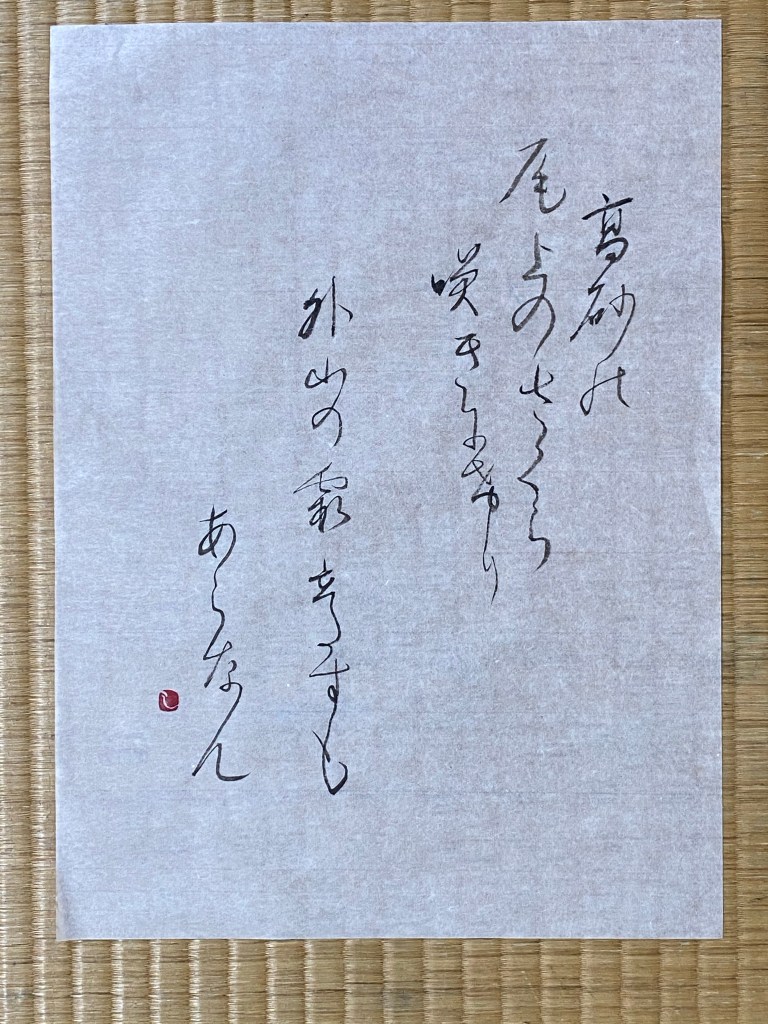 高砂の
尾上のさくら
咲きにけり
外山の霞立たすも
あらなん